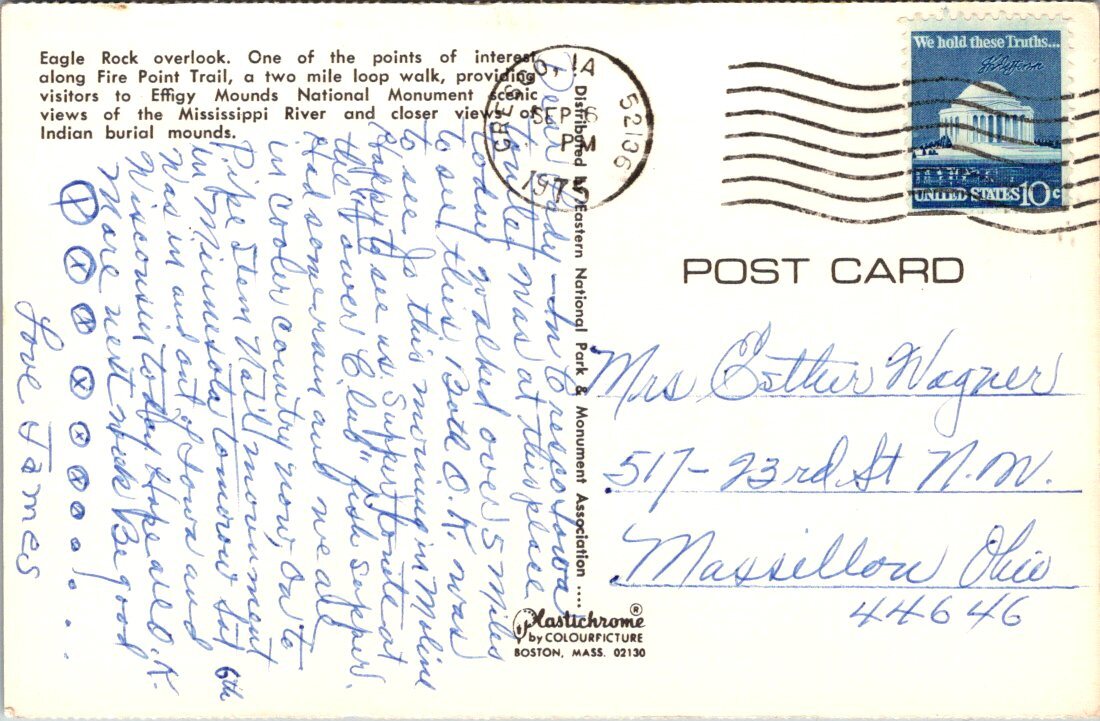 Eagle Rock overlook. One of the points of interest
along Fire Point Trail, a two mile loop walk, providing
visitors to Effigy Mounds National Monument scenic
views of the Mississippi River and closer views of
Indian burial mounds.
Dear Lady - In Cresco Iowa
was at this place
today walked over 5 miles
to see this. Both O.K. was
to see Jo this morning in Moline
Happy to see us. Supper tonite at
the "Tower Club" fish supper.
Had some rain and we are
in cooler country now, On to
Pipe Stem Nat'l monument
in Minnesota tomorow Sat 6th
Was in and out of Iowa and
Wisconsin today. Hope all O.K.
More next week Be good
X X X X X X X
Love James
Distributed by Eastern National Park & Monument Association ....
Plastichrome®
by COLOURPICTURE
BOSTON, MASS. 02130
CRESCO, IA 52136
SEP
PM
1975
We hold these Truths...
UNITED STATES 10c
POST CARD
Mrs Esther Wagner
517-23rd St N.W.
Massillon Ohio
44646